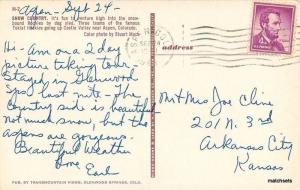 Aspen - Sept 24 -
SNOW COUNTRY. It's fun to venture high into the snow-
by dog sled. Three teams of the famous
Toklat huskies going up Castle Valley near Aspen, Colorado.
Color photo by Stuart Mace
Hi - Am on a 2 day
picture taking tour -
Stayed in Glenwood
Spgs last nite - The
Country side is beautiful
not much snow, but the
aspens are gorgeous.
Beautiful Weather
Love Earl
PUB. BY TRANSMOUNTAIN VIEWS, GLENWOOD SPRINGS, COLO.
address
Mr & Mrs Joe Cline
201 N. 3rd
Arkansas City
Kansas
matchsets